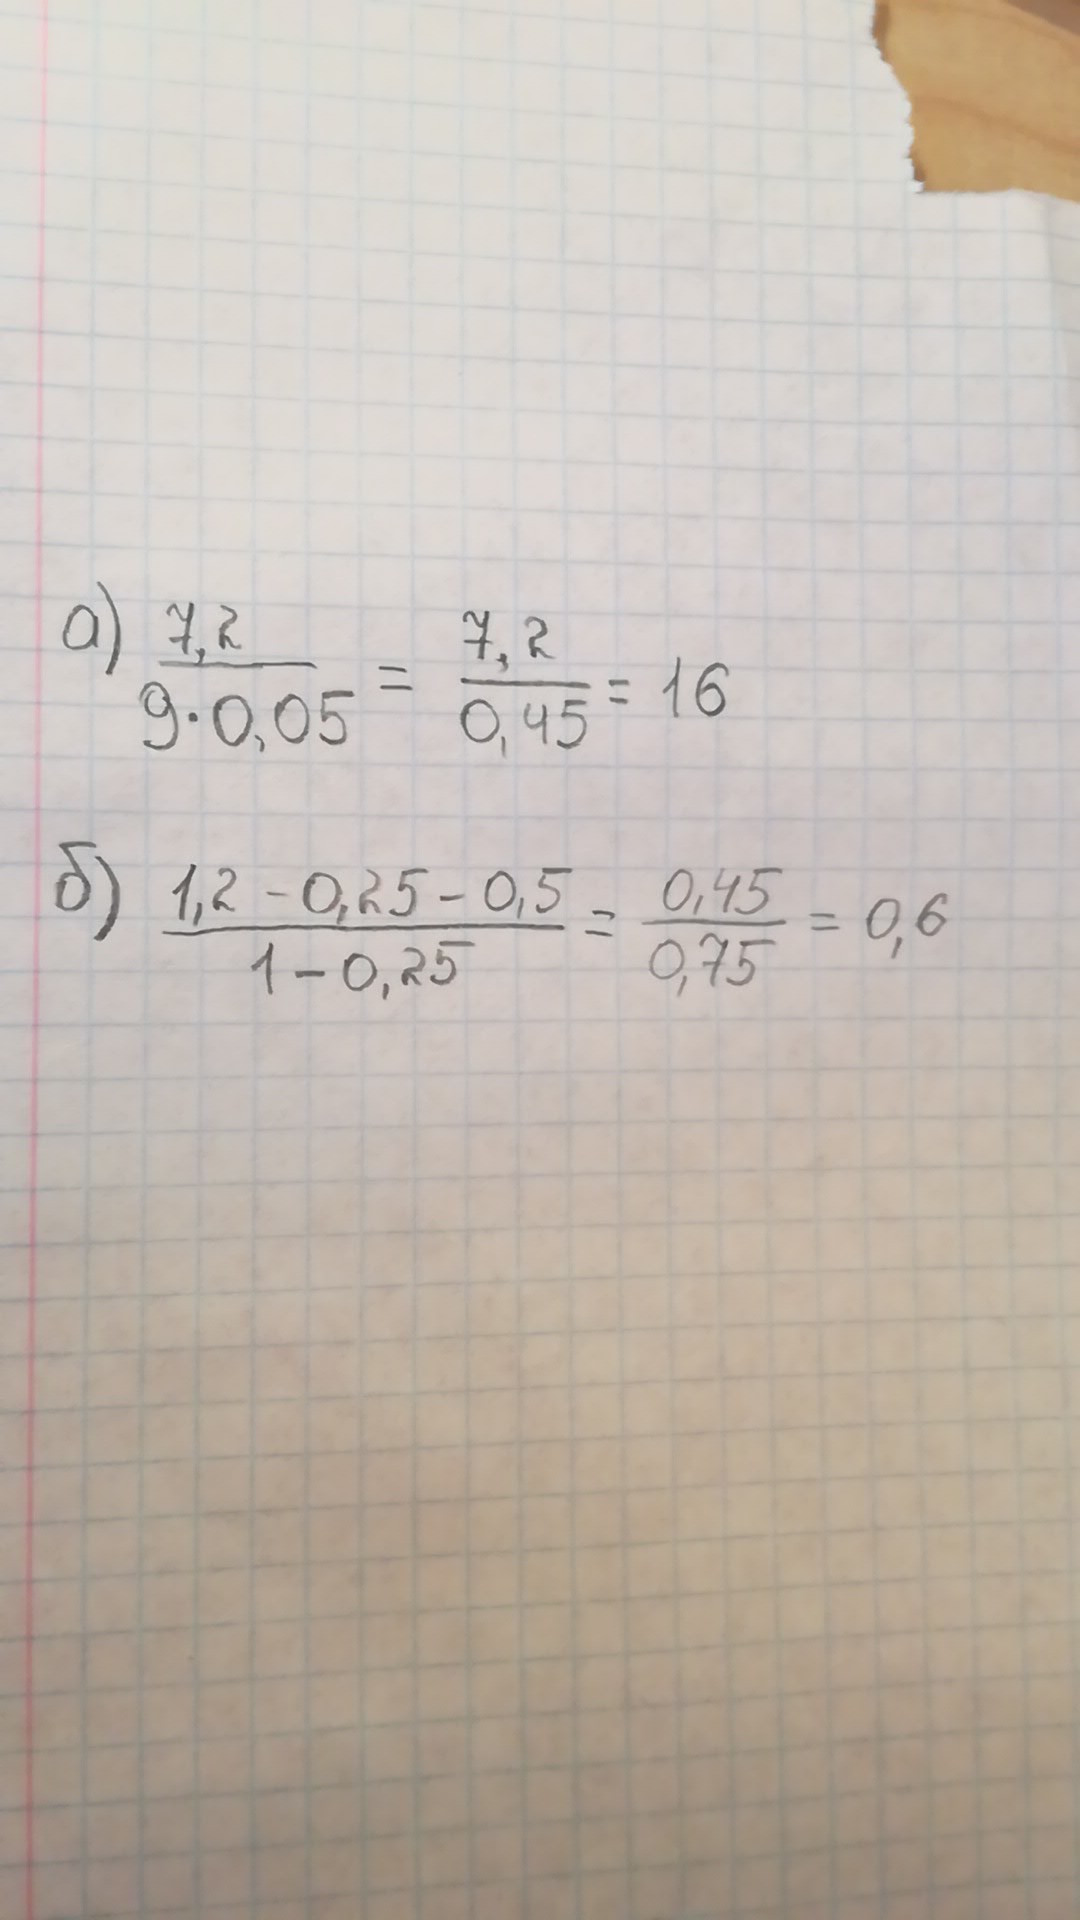 а) 7,2 / 9·0,05 = 7,2 / 0,45 = 16
б) 1,2 - 0,25 - 0,5 / 1 - 0,25 = 0,45 / 0,75 = 0,6